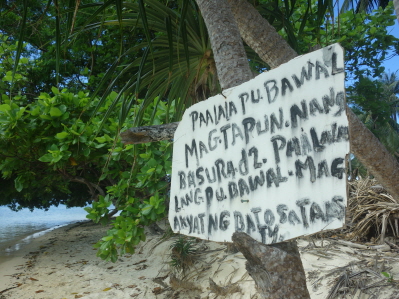 PAALALA PU. BAWAL
MAGTAPUN. NANG
BASURA d2. PAALALA
LANG PU. BAWAL. MAG
DAYAT NG BATO SA TABI